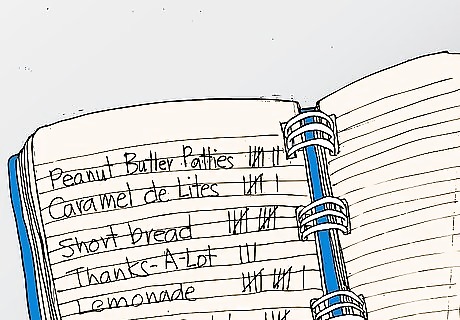 Peanut Butter Patties
Caramel de Lites
Short bread
Thanks-A-Lot
Lemonade